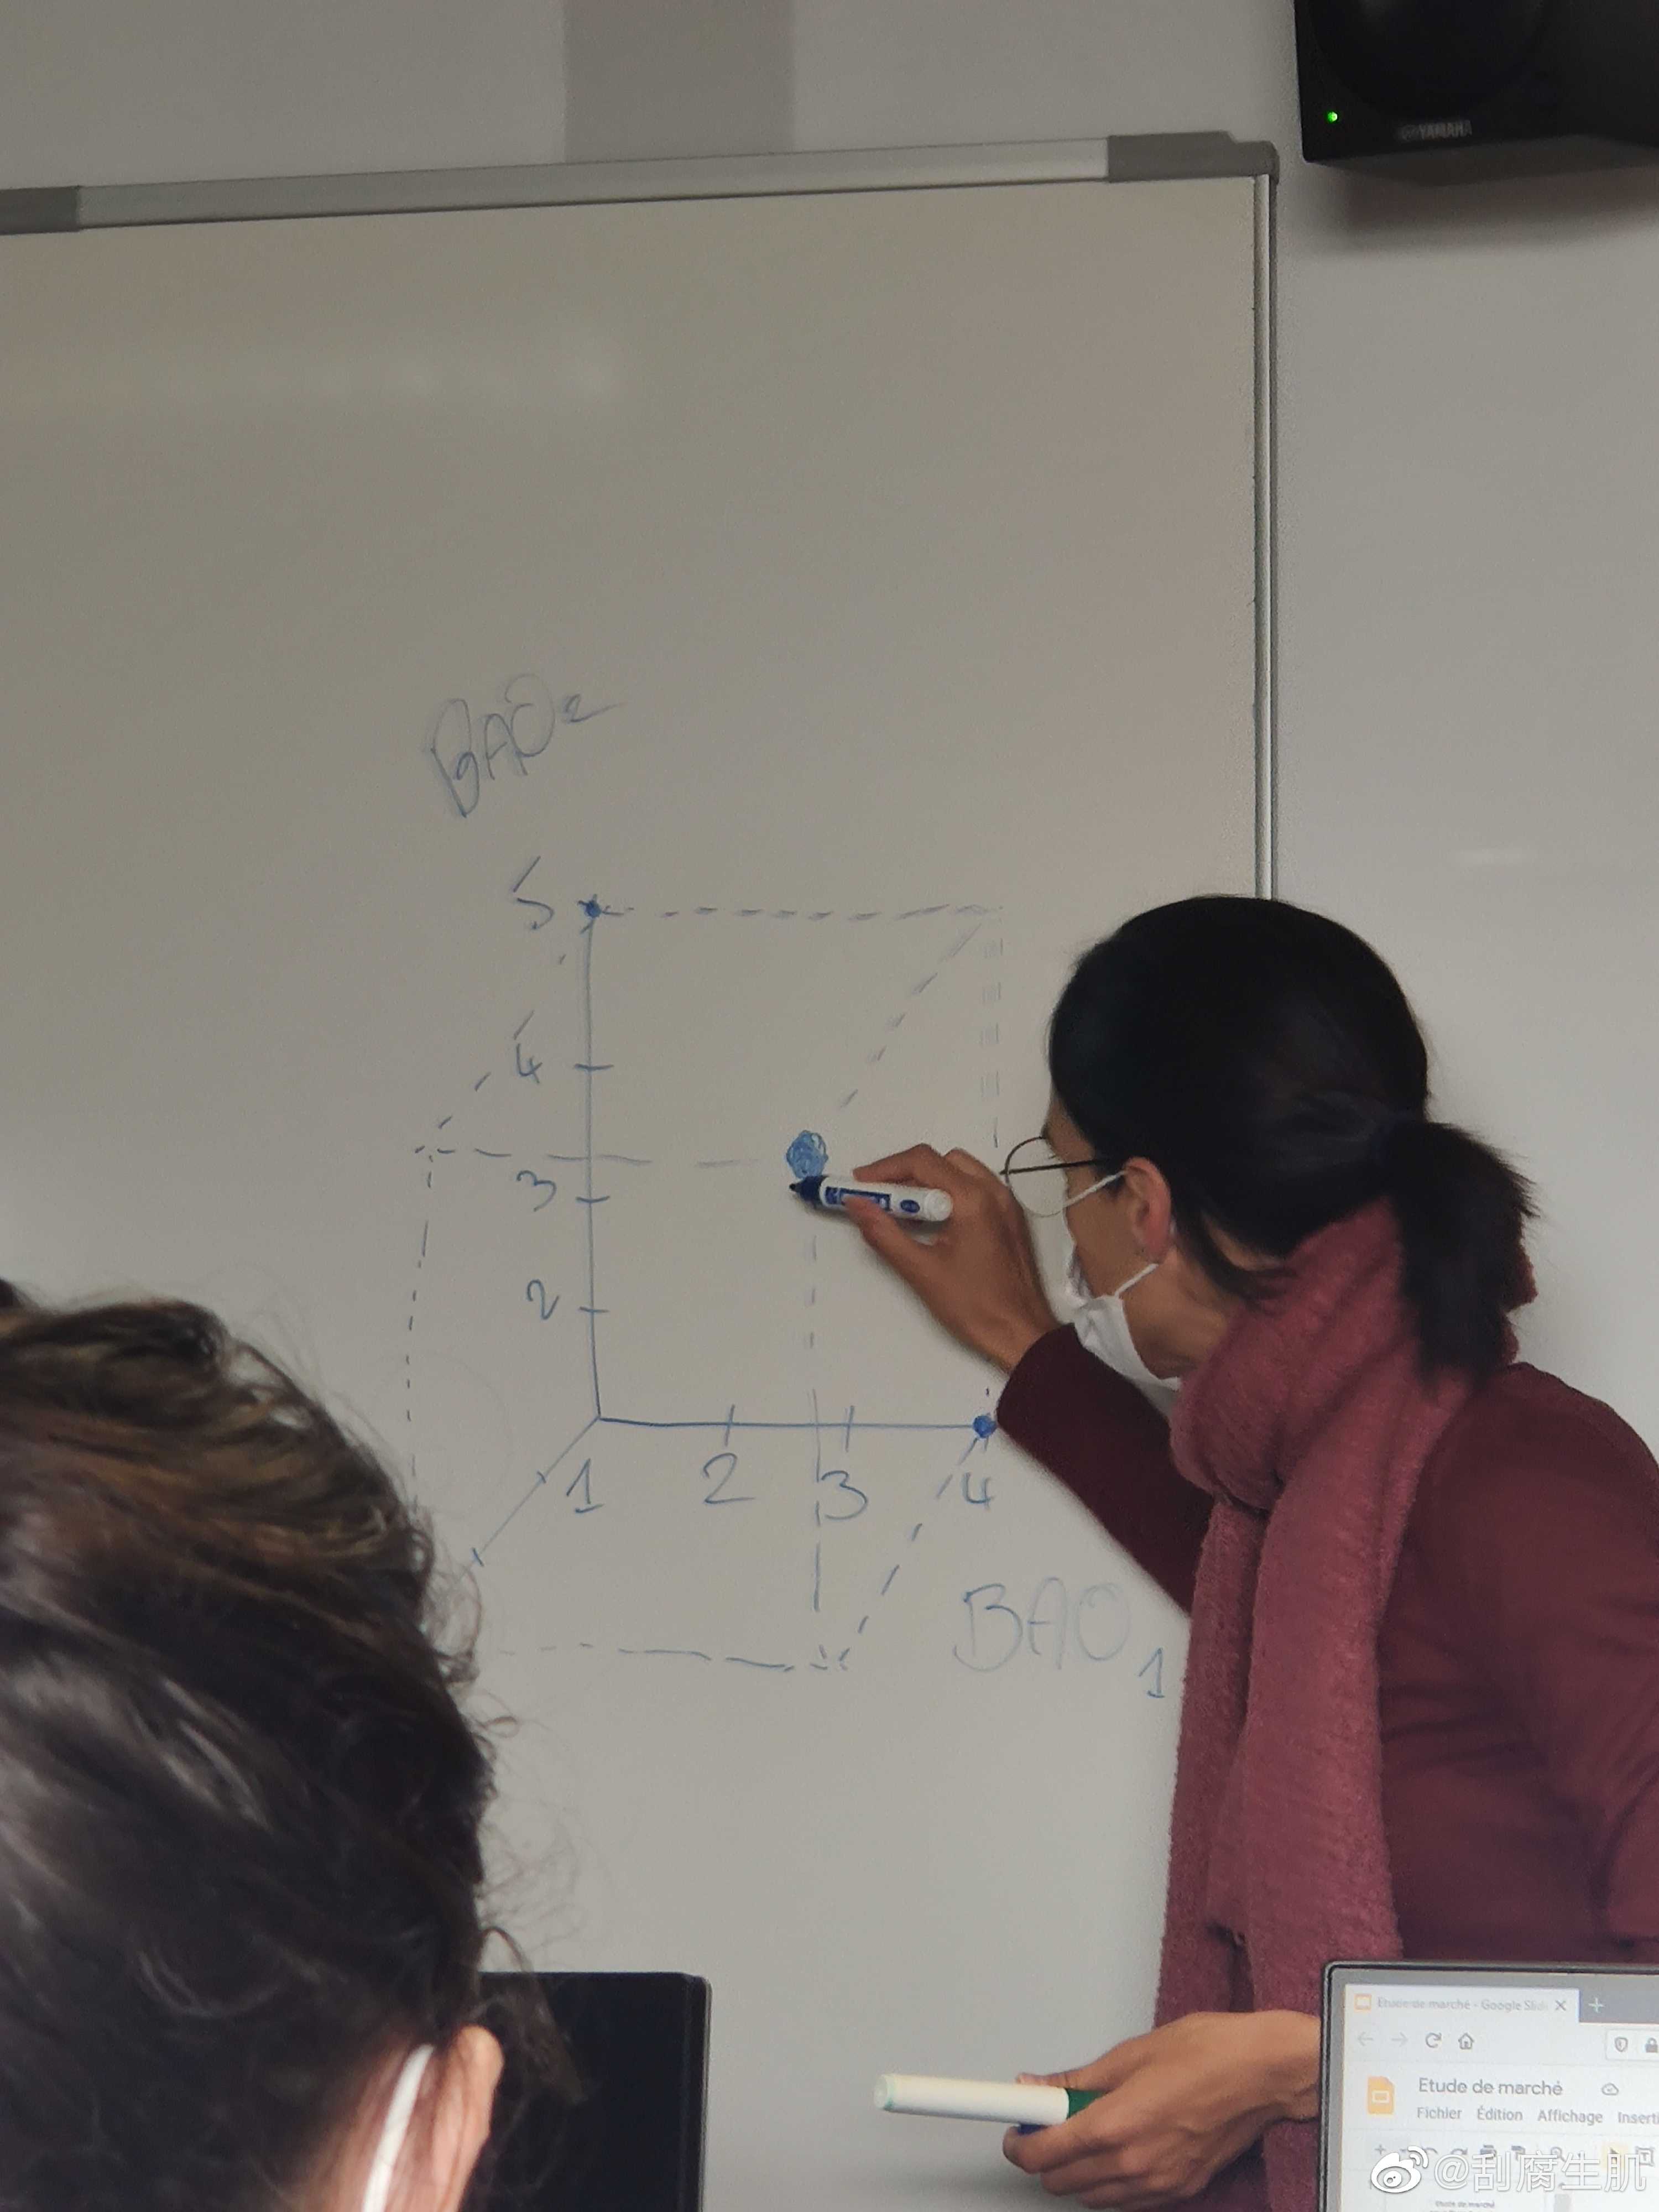 YAMAHA
BAO2
5
4
3
2
1 2 3 4
BAO1
Etude de marché - Google Slid
Etude de marché
Fichier Édition Affichage Inserti
@刮腐生肌